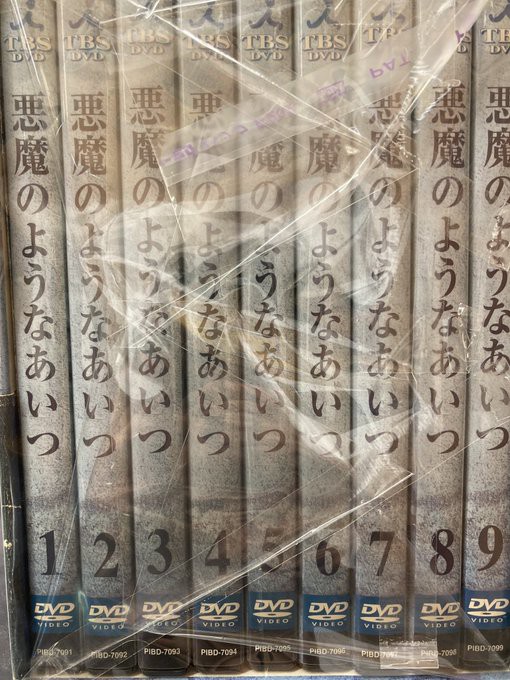 TBS
DVD
悪魔のようなあいつ
1
DVD
VIDEO
PIBD-7091
TBS
DVD
悪魔のようなあいつ
2
DVD
VIDEO
PIBD-7092
TBS
DVD
悪魔のようなあいつ
3
DVD
VIDEO
PIBD-7093
TBS
DVD
悪魔のようなあいつ
4
DVD
VIDEO
PIBD-7094
TBS
DVD
悪魔のようなあいつ
5
DVD
VIDEO
PIBD-7095
TBS
DVD
悪魔のようなあいつ
6
DVD
VIDEO
PIBD-7096
TBS
悪魔のようなあいつ
7
DVD
VIDEO
PIBD-7097
TBS
DVD
悪魔のようなあいつ
8
DVD
VIDEO
PIBD-7098
TBS
DVD
悪魔のようなあいつ
9
DVD
VIDEO
PIBD-7099
PAT